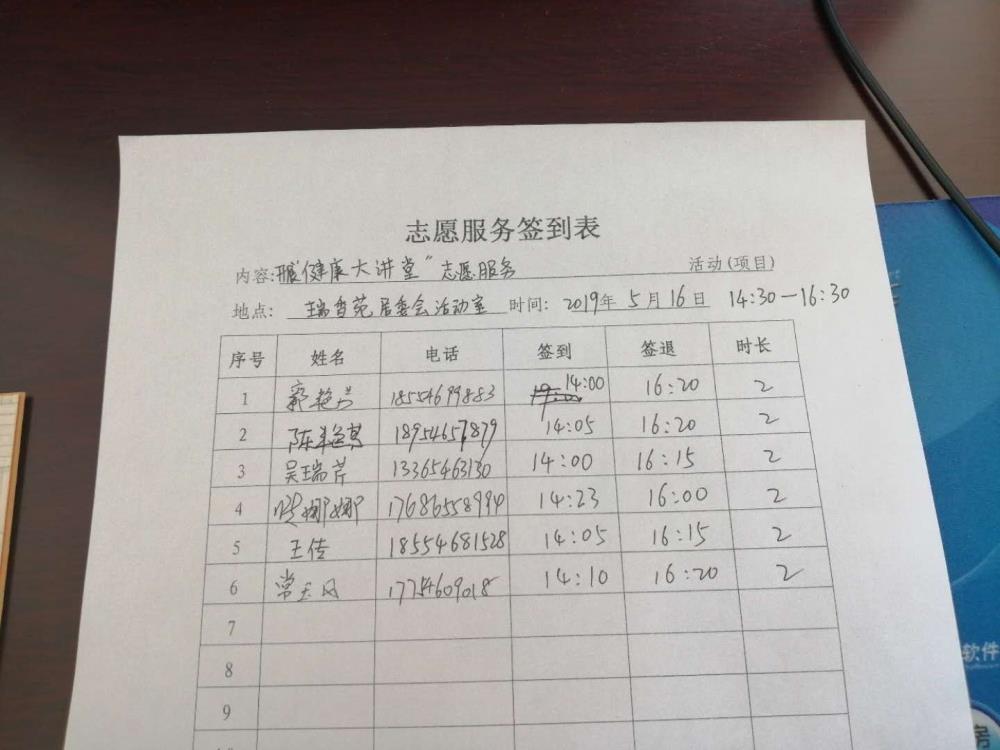 志愿服务签到表
内容:开展"健康大讲堂"志愿服务 活动(项目)
地点: 瑞香苑居委会活动室 时间: 2019年5月16日 14:30-16:30
序号 姓名 电话 签到 签退 时长
1 郭艳芳 18554699883 14:00 16:20 2
2 陈 18954657879 14:05 16:20 2
3 吴瑞芹 13365463130 14:00 16:15 2
4 娜娜 17686558994 14:23 16:00 2
5 王传 18554681528 14:05 16:15 2
6 常玉风 17754609018 14:10 16:20 2
7
8
9
软件
房